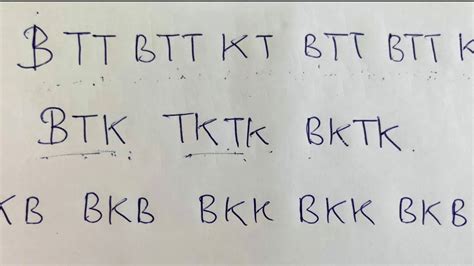 BTT BTT KT BTT BTT K
BTK TKTK BKTK
KB BKB BKK BKK BKB